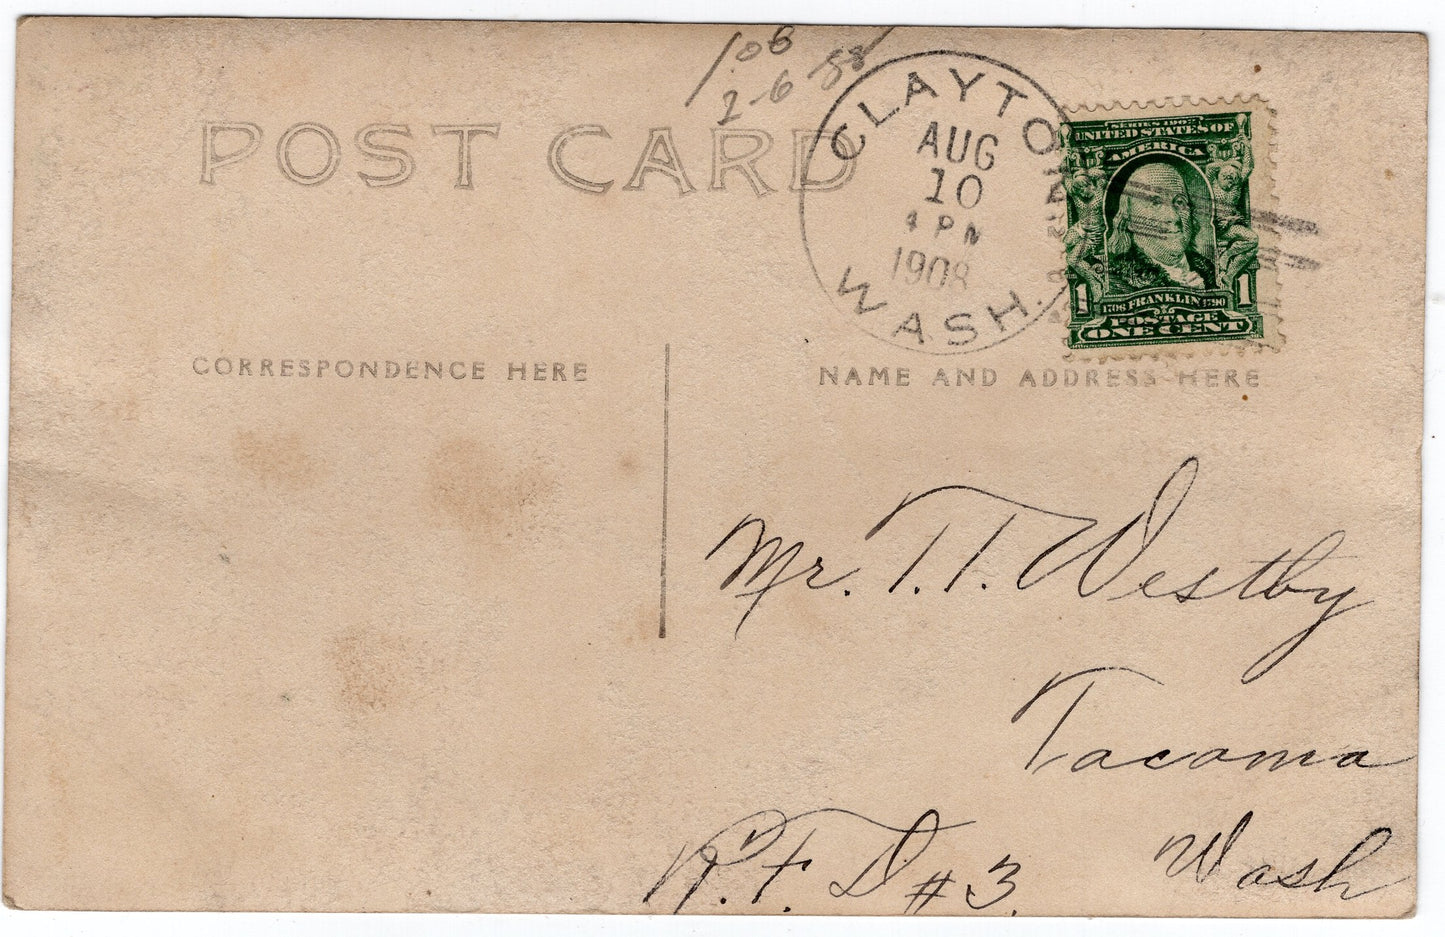 1.06
2-6-88
POST CARD
CLAYTON
AUG
10
4 PM
1908
WASH.
SERIES 1902
UNITED STATES OF
AMERICA
1 1706 FRANKLIN 1790 1
POSTAGE
ONE CENT
CORRESPONDENCE HERE
NAME AND ADDRESS HERE
Mr. T. T. Westby
Tacoma
Wash
R. F. D # 3.